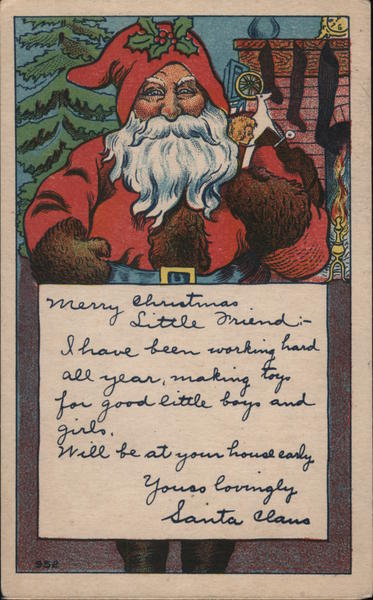 Merry Christmas
Little Friend:-
I have been working hard
all year, making toys
for good little boys and
girls.
Will be at your house early
Yours lovingly
Santa Claus
952